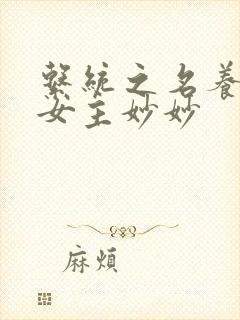 繫統之名養
女主妙妙
麻煩